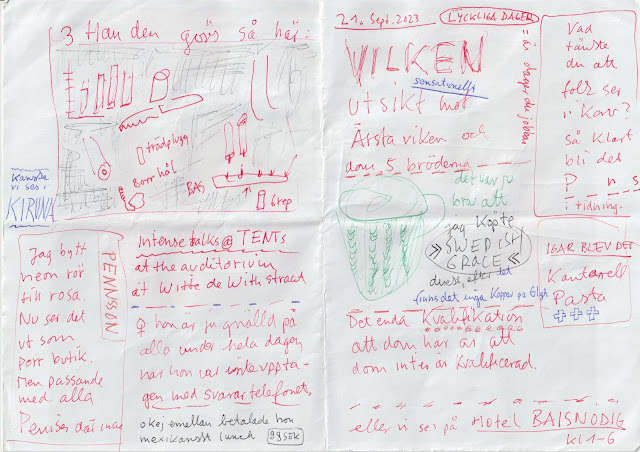 3 Han den görs så här:
trädplugg
Borrhål
BAS
Grep
Kanske
vi ses i
KIRUNA
Jag bytt
neon rör
till rosa.
Nu ser det
ut som
porr butik.
Men passande
med alla
Penisar där inne
PENNSON
Intense talks @ TENTs
at the auditorium
at Witte de With straat
♀ hon är ju gnälld på
alla under hela dagen
när hon var inte uppta-
gen med svarar telefonet.
okej emellan betalade hon
mexikanskt lunch 99 SEK
21. Sept. 2023
LYCKLIGA DAGER
= är dager du jobbar
VILKEN
sensationellt
utsikt mot
Årsta viken och
dom 5 bröderna
det var ju
bra att
jag köpte
SWEDISH
GRACE
direkt, efter det
finns det inga koppar på
Det enda Kvalifikation
att dom har är att
dom inte är Kvalificerad.
eller vi ses på Hotel BAISNODIG
kl 1-6
Vad
tänkte
du att
folk ser
i Korv?
Så klart
bli det
P n s
i tidning.
IGÅR BLEV DET
Kantarell
Pasta